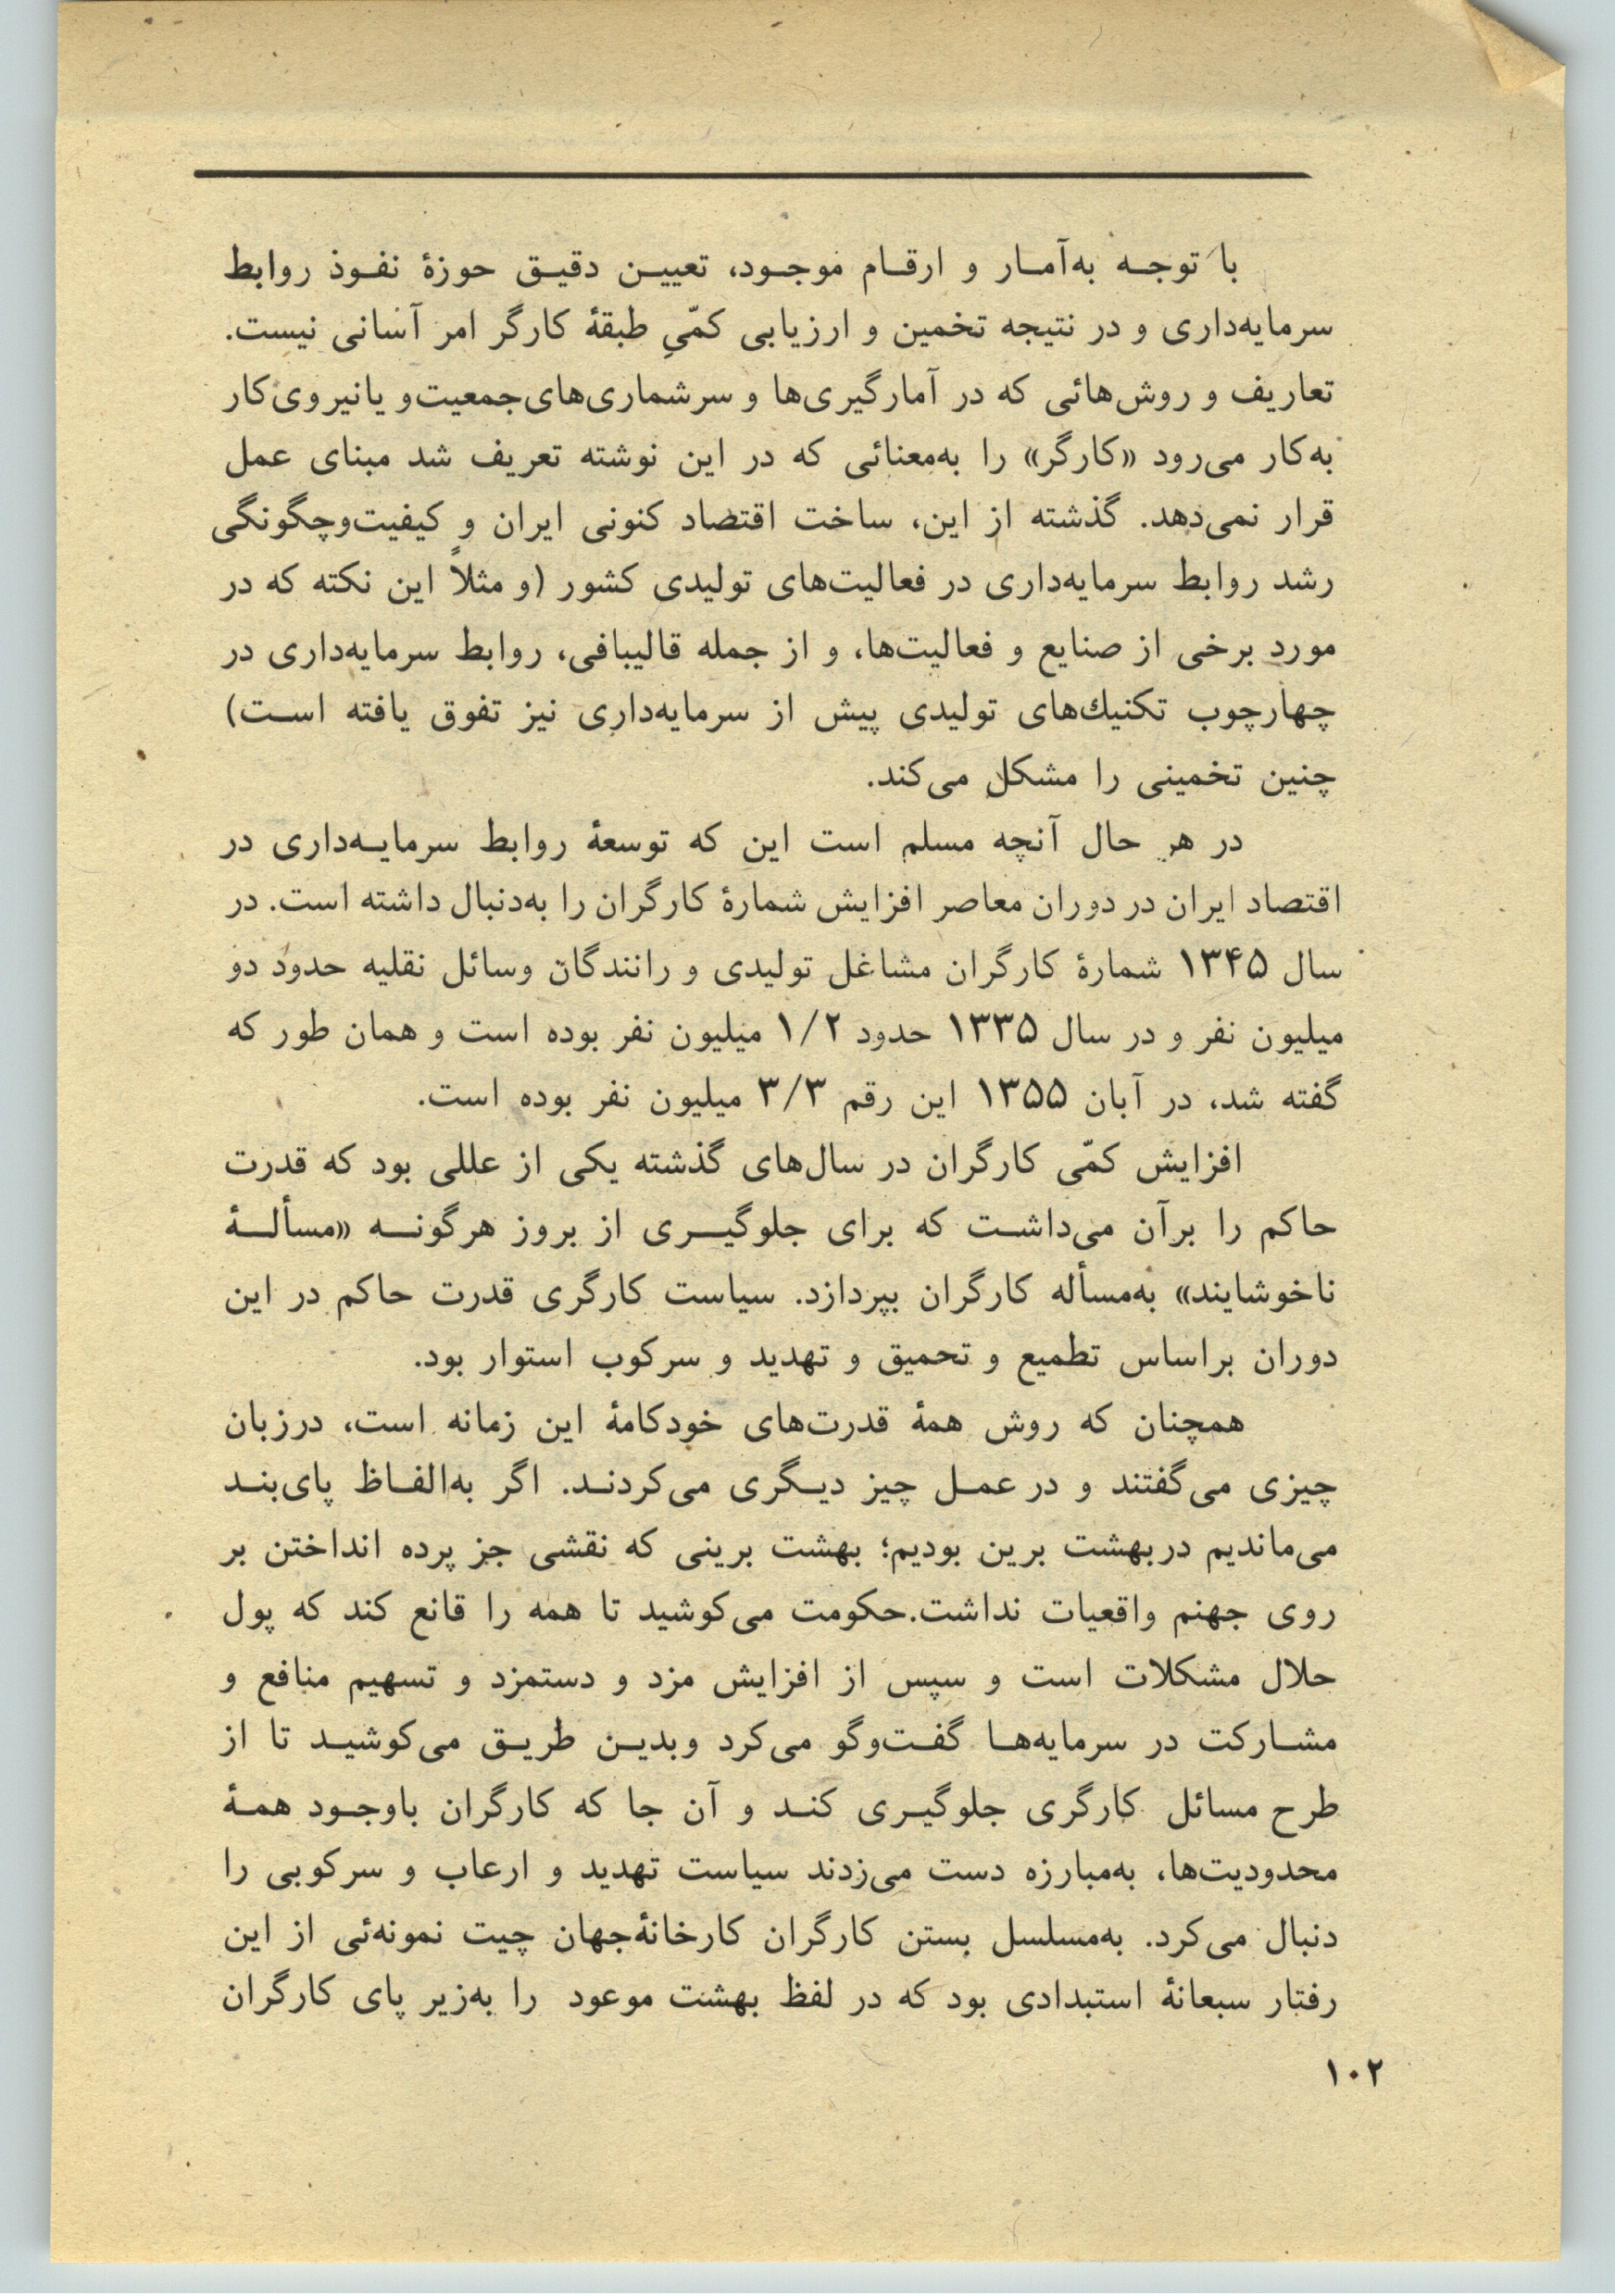 با توجه به‌آمار و ارقام موجود، تعیین دقیق حوزهٔ نفوذ روابط
سرمایه‌داری و در نتیجه تخمین و ارزیابی کمّیِ طبقهٔ کارگر امر آسانی نیست.
تعاریف و روش‌هائی که در آمارگیری‌ها و سرشماری‌های‌جمعیت‌و یانیروی‌کار
به‌کار می‌رود «کارگر» را به‌معنائی که در این نوشته تعریف شد مبنای عمل
قرار نمی‌دهد. گذشته از این، ساخت اقتصاد کنونی ایران و کیفیت‌وچگونگی
رشد روابط سرمایه‌داری در فعالیت‌های تولیدی کشور (و مثلاً این نکته که در
مورد برخی از صنایع و فعالیت‌ها، و از جمله قالیبافی، روابط سرمایه‌داری در
چهارچوب تکنیك‌های تولیدی پیش از سرمایه‌داری نیز تفوق یافته است)
چنین تخمینی را مشکل می‌کند.
در هر حال آنچه مسلم است این که توسعهٔ روابط سرمایه‌داری در
اقتصاد ایران در دوران معاصر افزایش شمارهٔ کارگران را به‌دنبال داشته است. در
سال ۱۳۴۵ شمارهٔ کارگران مشاغل تولیدی و رانندگان وسائل نقلیه حدود دو
میلیون نفر و در سال ۱۳۳۵ حدود ۱/۲ میلیون نفر بوده است و همان طور که
گفته شد، در آبان ۱۳۵۵ این رقم ۳/۳ میلیون نفر بوده است.
افزایش کمّی کارگران در سال‌های گذشته یکی از عللی بود که قدرت
حاکم را برآن می‌داشت که برای جلوگیری از بروز هرگونه «مسألهٔ
ناخوشایند» به‌مسأله کارگران بپردازد. سیاست کارگری قدرت حاکم در این
دوران براساس تطمیع و تحمیق و تهدید و سرکوب استوار بود.
همچنان که روش همهٔ قدرت‌های خودکامهٔ این زمانه است، درزبان
چیزی می‌گفتند و در عمل چیز دیگری می‌کردند. اگر به‌الفاظ پای‌بند
می‌ماندیم دربهشت برین بودیم؛ بهشت برینی که نقشی جز پرده انداختن بر
روی جهنم واقعیات نداشت.حکومت می‌کوشید تا همه را قانع کند که پول
حلال مشکلات است و سپس از افزایش مزد و دستمزد و تسهیم منافع و
مشارکت در سرمایه‌ها گفت‌وگو می‌کرد وبدین طریق می‌کوشید تا از
طرح مسائل کارگری جلوگیری کند و آن جا که کارگران باوجود همهٔ
محدودیت‌ها، به‌مبارزه دست می‌زدند سیاست تهدید و ارعاب و سرکوبی را
دنبال می‌کرد. به‌مسلسل بستن کارگران کارخانهٔ‌جهان چیت نمونه‌ئی از این
رفتار سبعانهٔ استبدادی بود که در لفظ بهشت موعود را به‌زیر پای کارگران
۱۰۲